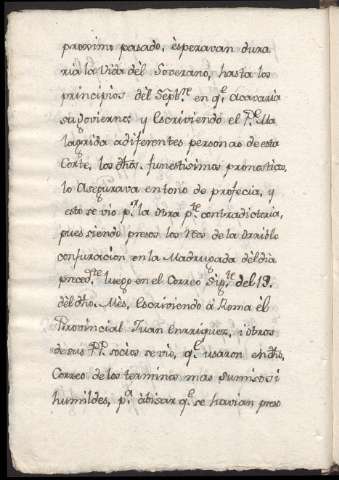 proximo pasado, esperavan dura
ria la Vida del Soverano, hasta los
principios del Septre en qe acavaria
su govierno; y escriviendo el Pe Ma
lagrida adiferentes personas de esta
Corte, los dhos. funestisimos pronosticos,
lo Asegurava entono de profecia, y
esto se vio pr la otra pte contradictoria,
pues siendo presos los Reos de la
conjuracion en la Madrugada del dia
preced.te luego en el Correo Sigte del 19.
del dho. Mes, escriviendo á Roma èl
Provincial Juan Enrriquez, i otros
de sus PP. socios se vio, qe usaron en dho
Correo de los terminos mas sumisos i
humildes, pa abisar qe se havian preso